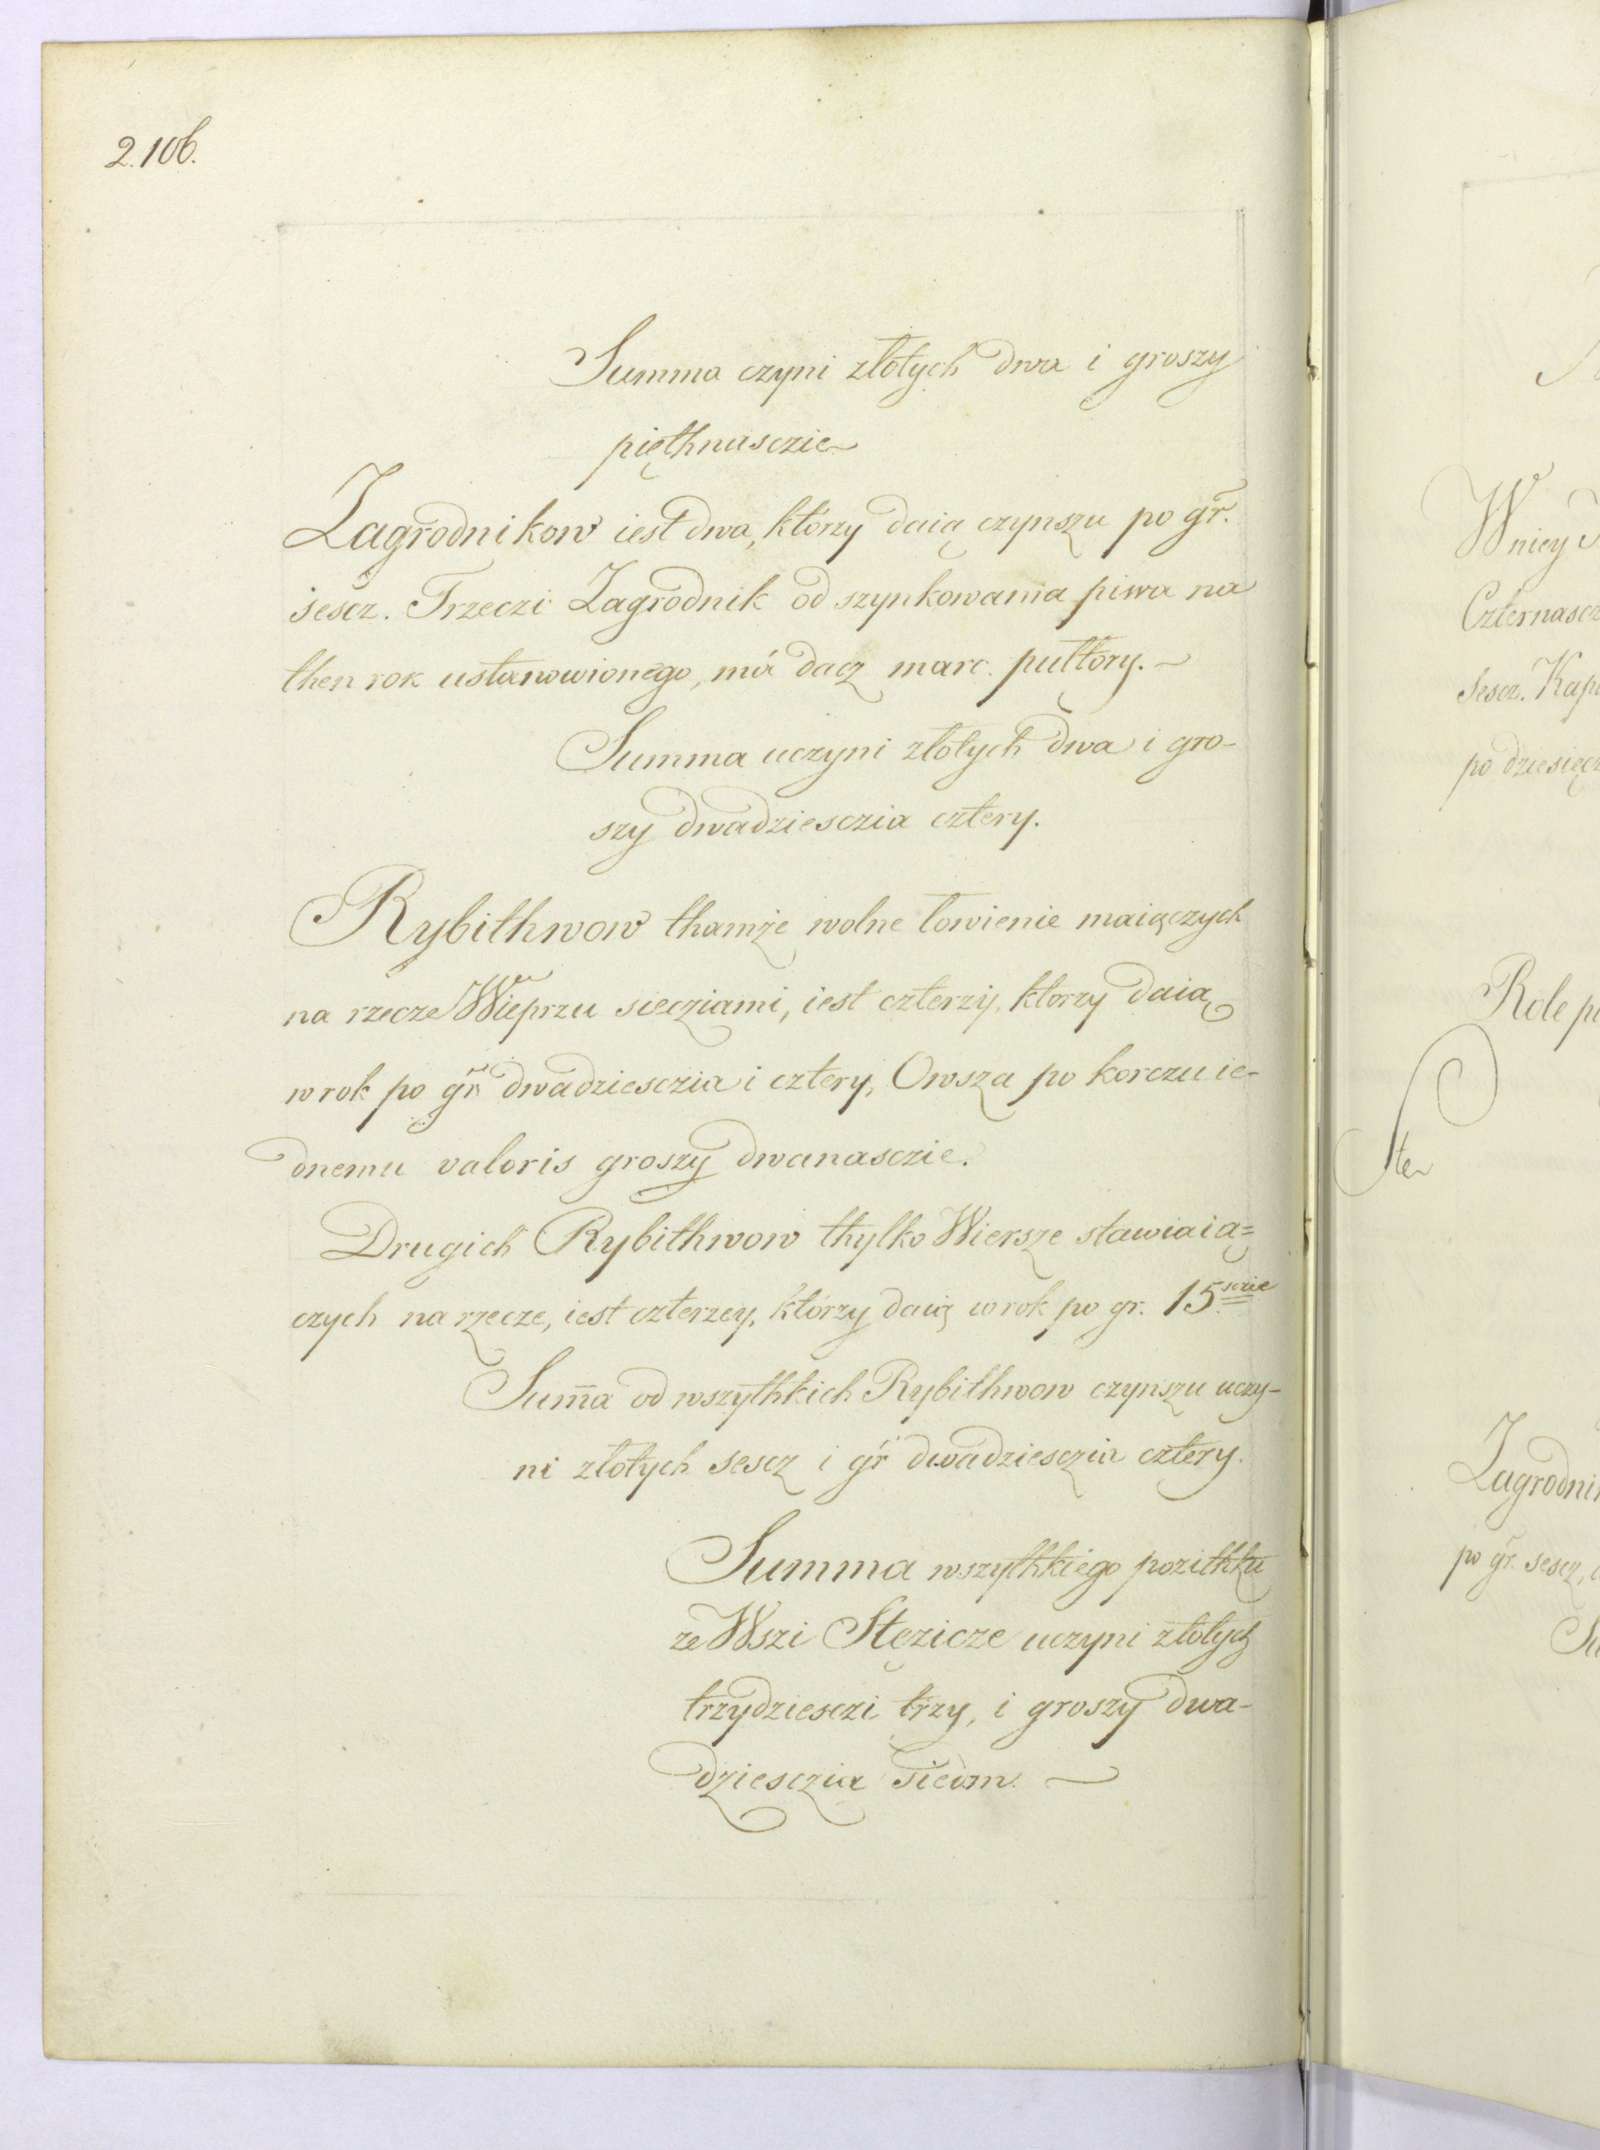 2.106.
Summa czyni złotych dwa i groszy
pięthnasczie
Zagrodnikow iest dwa, którzy daią czynszu po gr.
sescz. Trzeczi Zagrodnik od szynkowania piwa na
then rok ustanowionego, má dacz marc. pułtory.
Summa uczyni złotych dwa i gro-
szy dwadziesczia cztery.
Rybithwow thamże wolne łowienie maiączych
na rzecze Wieprzu siecziami, iest czterzy, ktorzy daią
w rok po gr dwadziesczia i cztery, Owsza po korczu ie-
dnemu valoris groszy dwanasczie.
Drugich Rybithwow thylko Wiersze stawiaią=
czych na rzecze, iest czterzey, którzy daią w rok po gr. 15.sczie
Sum̄a od wszythkich Rybithwow czynszu uczy-
ni złotych sescz i gr dwadziesczia cztery.
Summa wszythkiego pozithku
ze Wszi Stęzicze uczyni złotych
trzydziesczi trzy, i groszy dwa-
dziesczia siedm.
W niey
Czternascz
Sescz.
po dziesięcz
Role
Zagrodni
po gr. sescz,